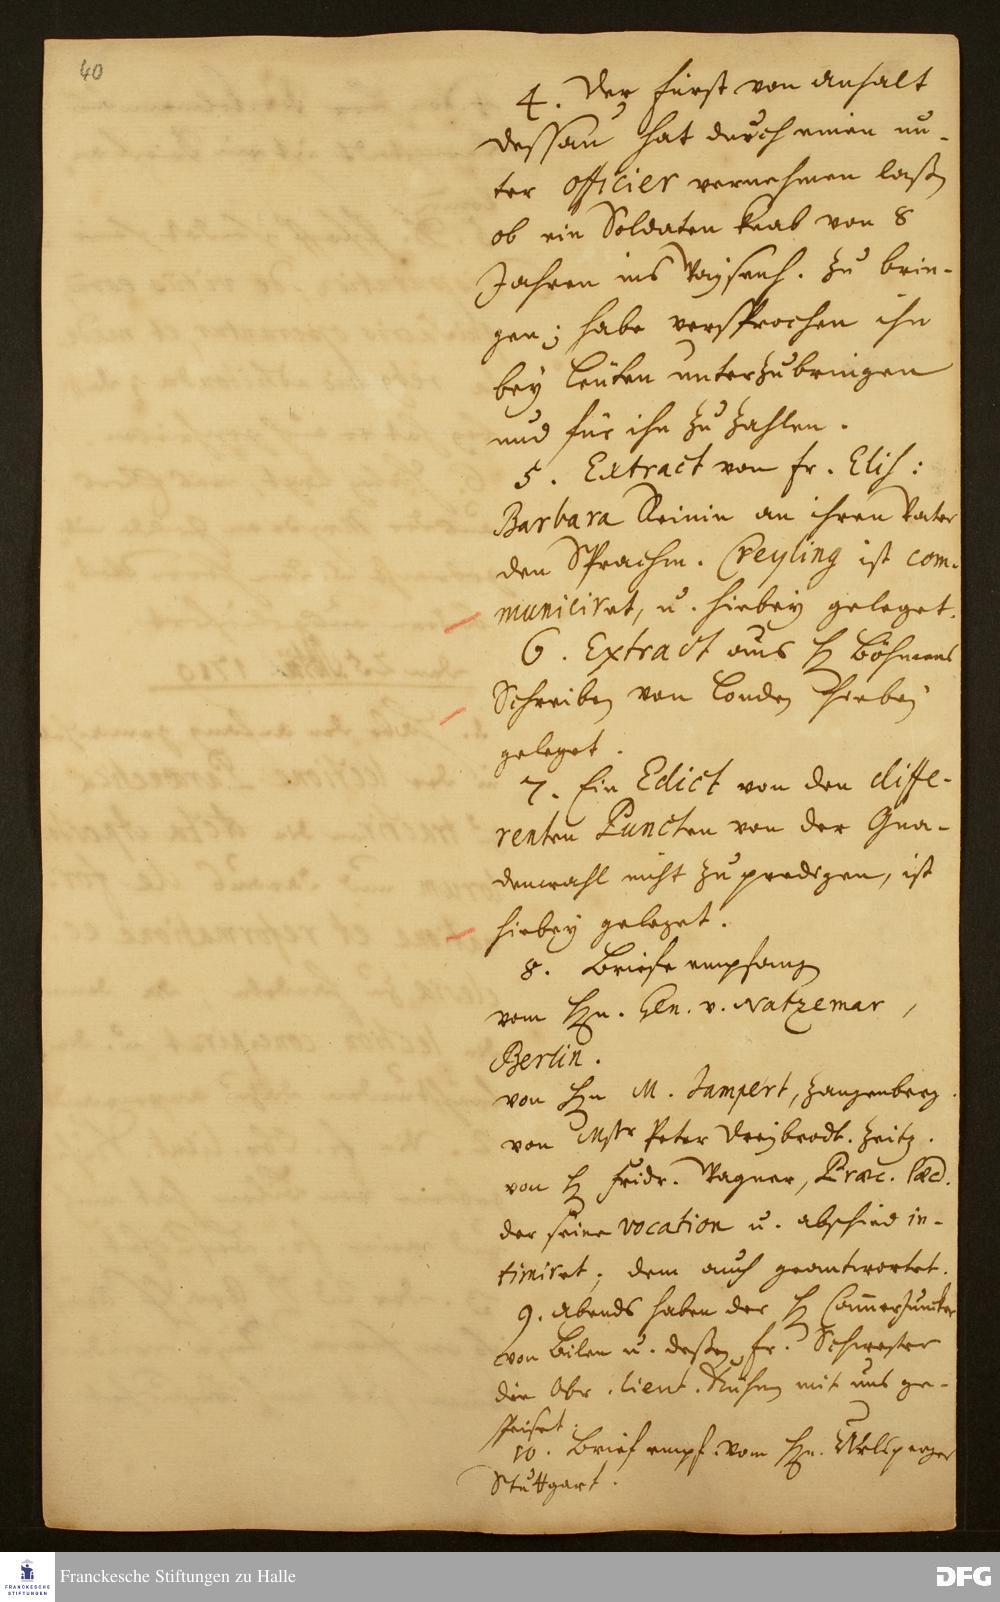 40
4. Der Fürst von Anhalt
Dessau hat durch einen un-
ter officier vernehmen laßen
ob ein Soldaten knab von 8
Jahren ins Waysenh. zu brin-
gen; habe versprochen ihn
bey Leuten unterzubringen
und für ihn zu zahlen.
5. Extract von Fr. Elis:
Barbara Keinin an ihren Vater
den Sprachm. Creyling ist com-
municiret, u. hiebey geleget.
6. Extract aus H. Böhmens
Schreiben von Londen hiebey
geleget.
7. Ein Edict von den diffe-
renten Puncten von der Gna-
denwahl nicht zu predigen, ist
hiebey geleget.
8. Briefe empfang
vom Hn. Gen. v. Natzemar,
Berlin.
von Hn M. Lampert, Zangenberg.
von Mstr Peter Dreybrodt. Zeitz.
von H Fridr. Wagner, Præc. Pæd.
der seine vocation u. abschied in-
timiret, dem auch geantwortet.
9. Abends haben der H Cammerjuncker
von Bilen u. deßen Fr. Schwester
die Obr. lieut. mit uns ge-
speiset.
10. Brief empf. vom Hn. Urlsperger
Stuttgart.
FRANCKESCHE
STIFTUNGEN
Franckesche Stiftungen zu Halle
DFG